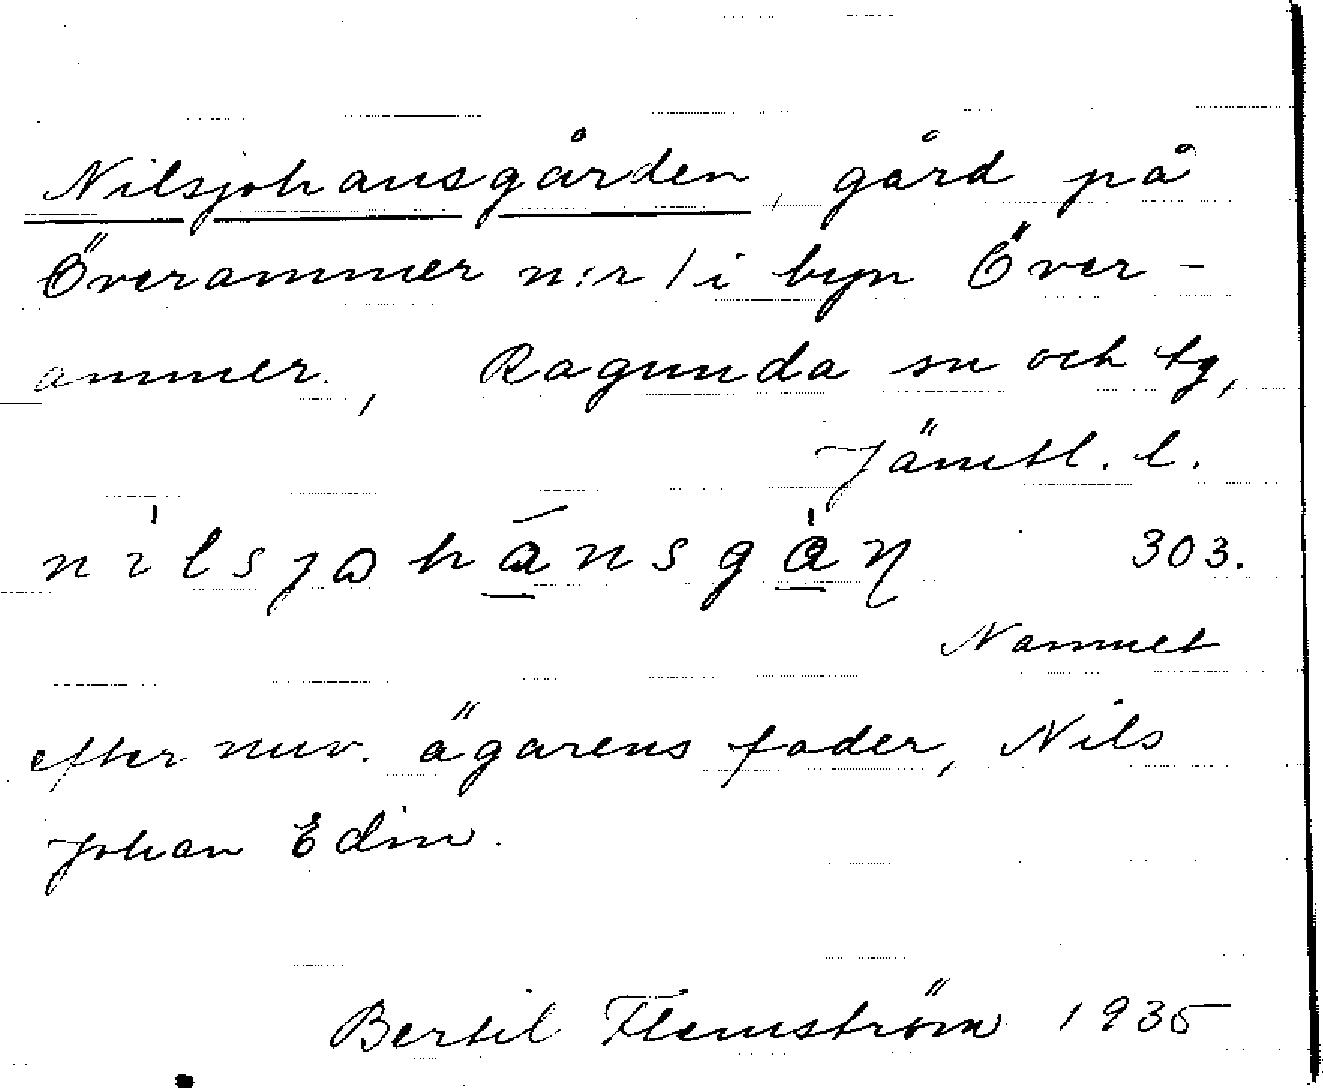 Nilsjohansgården, gård på
Överammer n:r 1 i byn Över-
ammer, Ragunda sn och tg,
Jämtl. l.
nilsjohánsgàn 303.
Namnet
efter nuv. ägarens fader, Nils
Johan Edin.
Bertil Flemström 1935